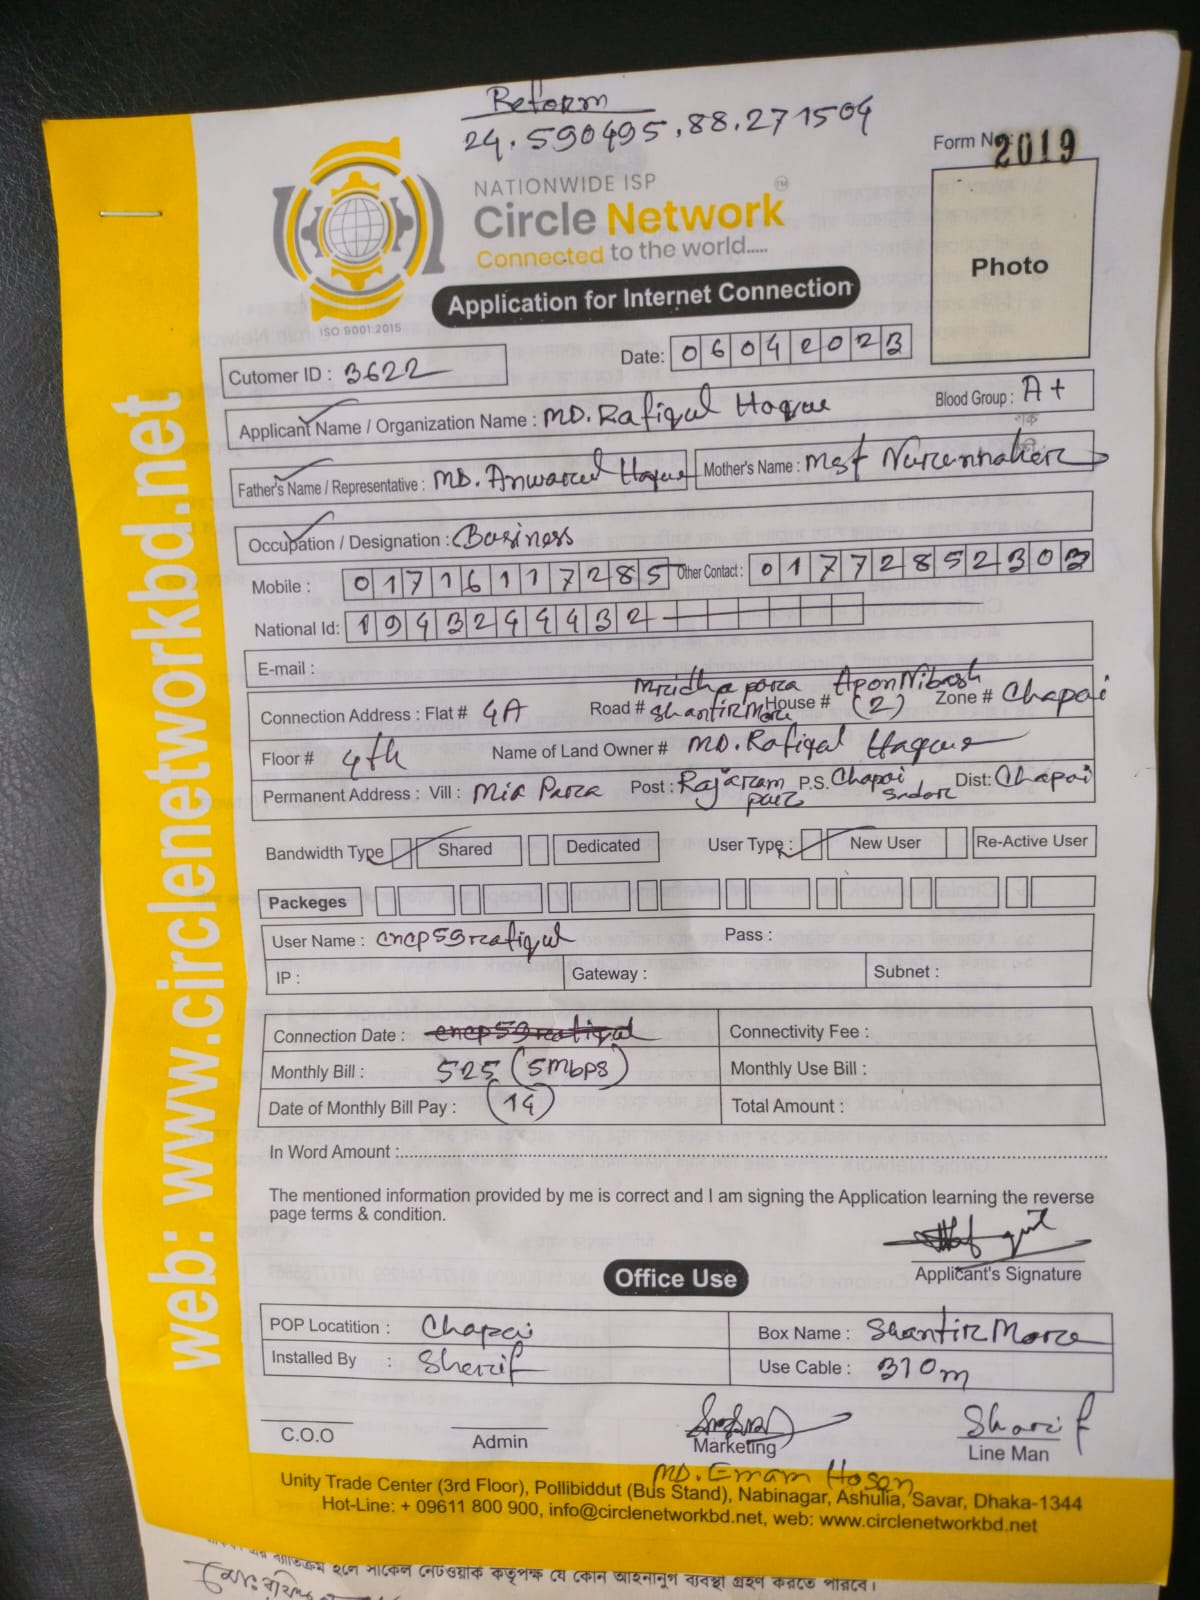 Reform
24.590495,88.271504
Form No: 2019
NATIONWIDE ISP
Circle Network TM
Connected to the world.....
ISO 9001:2015
Application for Internet Connection
Photo
Cutomer ID : 3622
Date: 06042023
Applicant Name / Organization Name : MD. Rafiqul Haque
Blood Group : A+
Father's Name / Representative : MD. Anwarul Haque
Mother's Name : Mst Nurennaher
Occupation / Designation : Business
Mobile : 01716117285 Other Contact : 01772852303
National Id: 1943299432
E-mail :
Mridha para Apon Nibash
Connection Address : Flat # 4A Road # Shantir More House # (2) Zone # Chapai
Floor # 4th Name of Land Owner # MD. Rafiqul Haque
Permanent Address : Vill : Mia Para Post : Rajaram pur P.S. Chapai Sador Dist: Chapai
Bandwidth Type Shared Dedicated User Type : New User Re-Active User
Packeges
User Name : cncp59rafiqul Pass :
IP : Gateway : Subnet :
Connection Date : cncp59rafiqul Connectivity Fee :
Monthly Bill : 525 (5Mbps) Monthly Use Bill :
Date of Monthly Bill Pay : (14) Total Amount :
In Word Amount :
The mentioned information provided by me is correct and I am signing the Application learning the reverse
page terms & condition.
Applicant's Signature
Office Use
POP Locatition : Chapai Box Name : Shantir More
Installed By : Sherif Use Cable : 310m
Sharif
C.O.O Admin Marketing Line Man
MD. Emam Hosen
Unity Trade Center (3rd Floor), Pollibiddut (Bus Stand), Nabinagar, Ashulia, Savar, Dhaka-1344
Hot-Line: + 09611 800 900, info@circlenetworkbd.net, web: www.circlenetworkbd.net
web: www.circlenetworkbd.net
ব্যতিক্রম হলে সার্কেল নেটওয়ার্ক কর্তৃপক্ষ যে কোন আইনানুগ ব্যবস্থা গ্রহণ করতে পারবে।